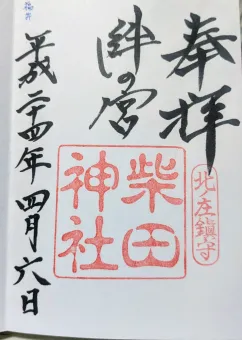 奉拝
北庄鎮守
絆の宮
柴田神社
平成二十四年四月六日
福井